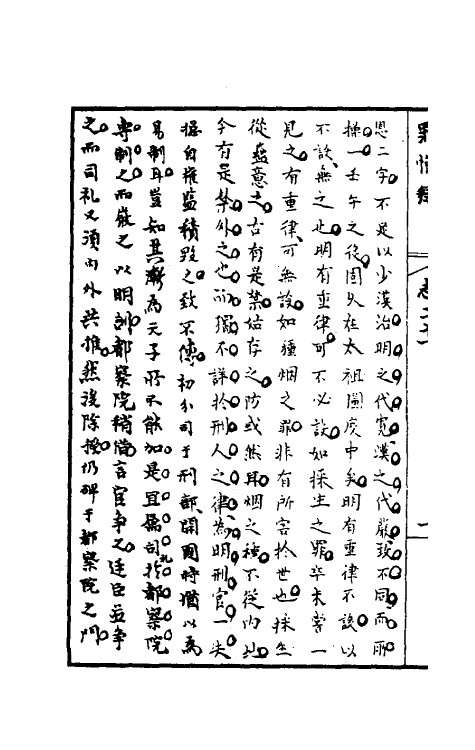 恩二字不足以少漢治明之代寬漢之代嚴政不同而所
操一壬午之後固久在太祖圜度中矣明有重律不該以
不該無之也明有重律可不必設如採生之罪卒未嘗一
見之有重律可無設如種烟之罪非有所害於世也採生
從盜意之古有是禁姑存之防或然耳烟之種不從內地
今有是禁外之也所獨不詳於刑人之律為明刑官一失
操自權盜積毀之致不傳初分司于刑部開國時猶以為
易制耳豈知其漸為天子所不能加是宜屬司於都察院
專制之而嚴之以明都察院稍懦言官爭之廷臣並爭
之而司礼又須內外共推然後除授仍碑于都察院之門